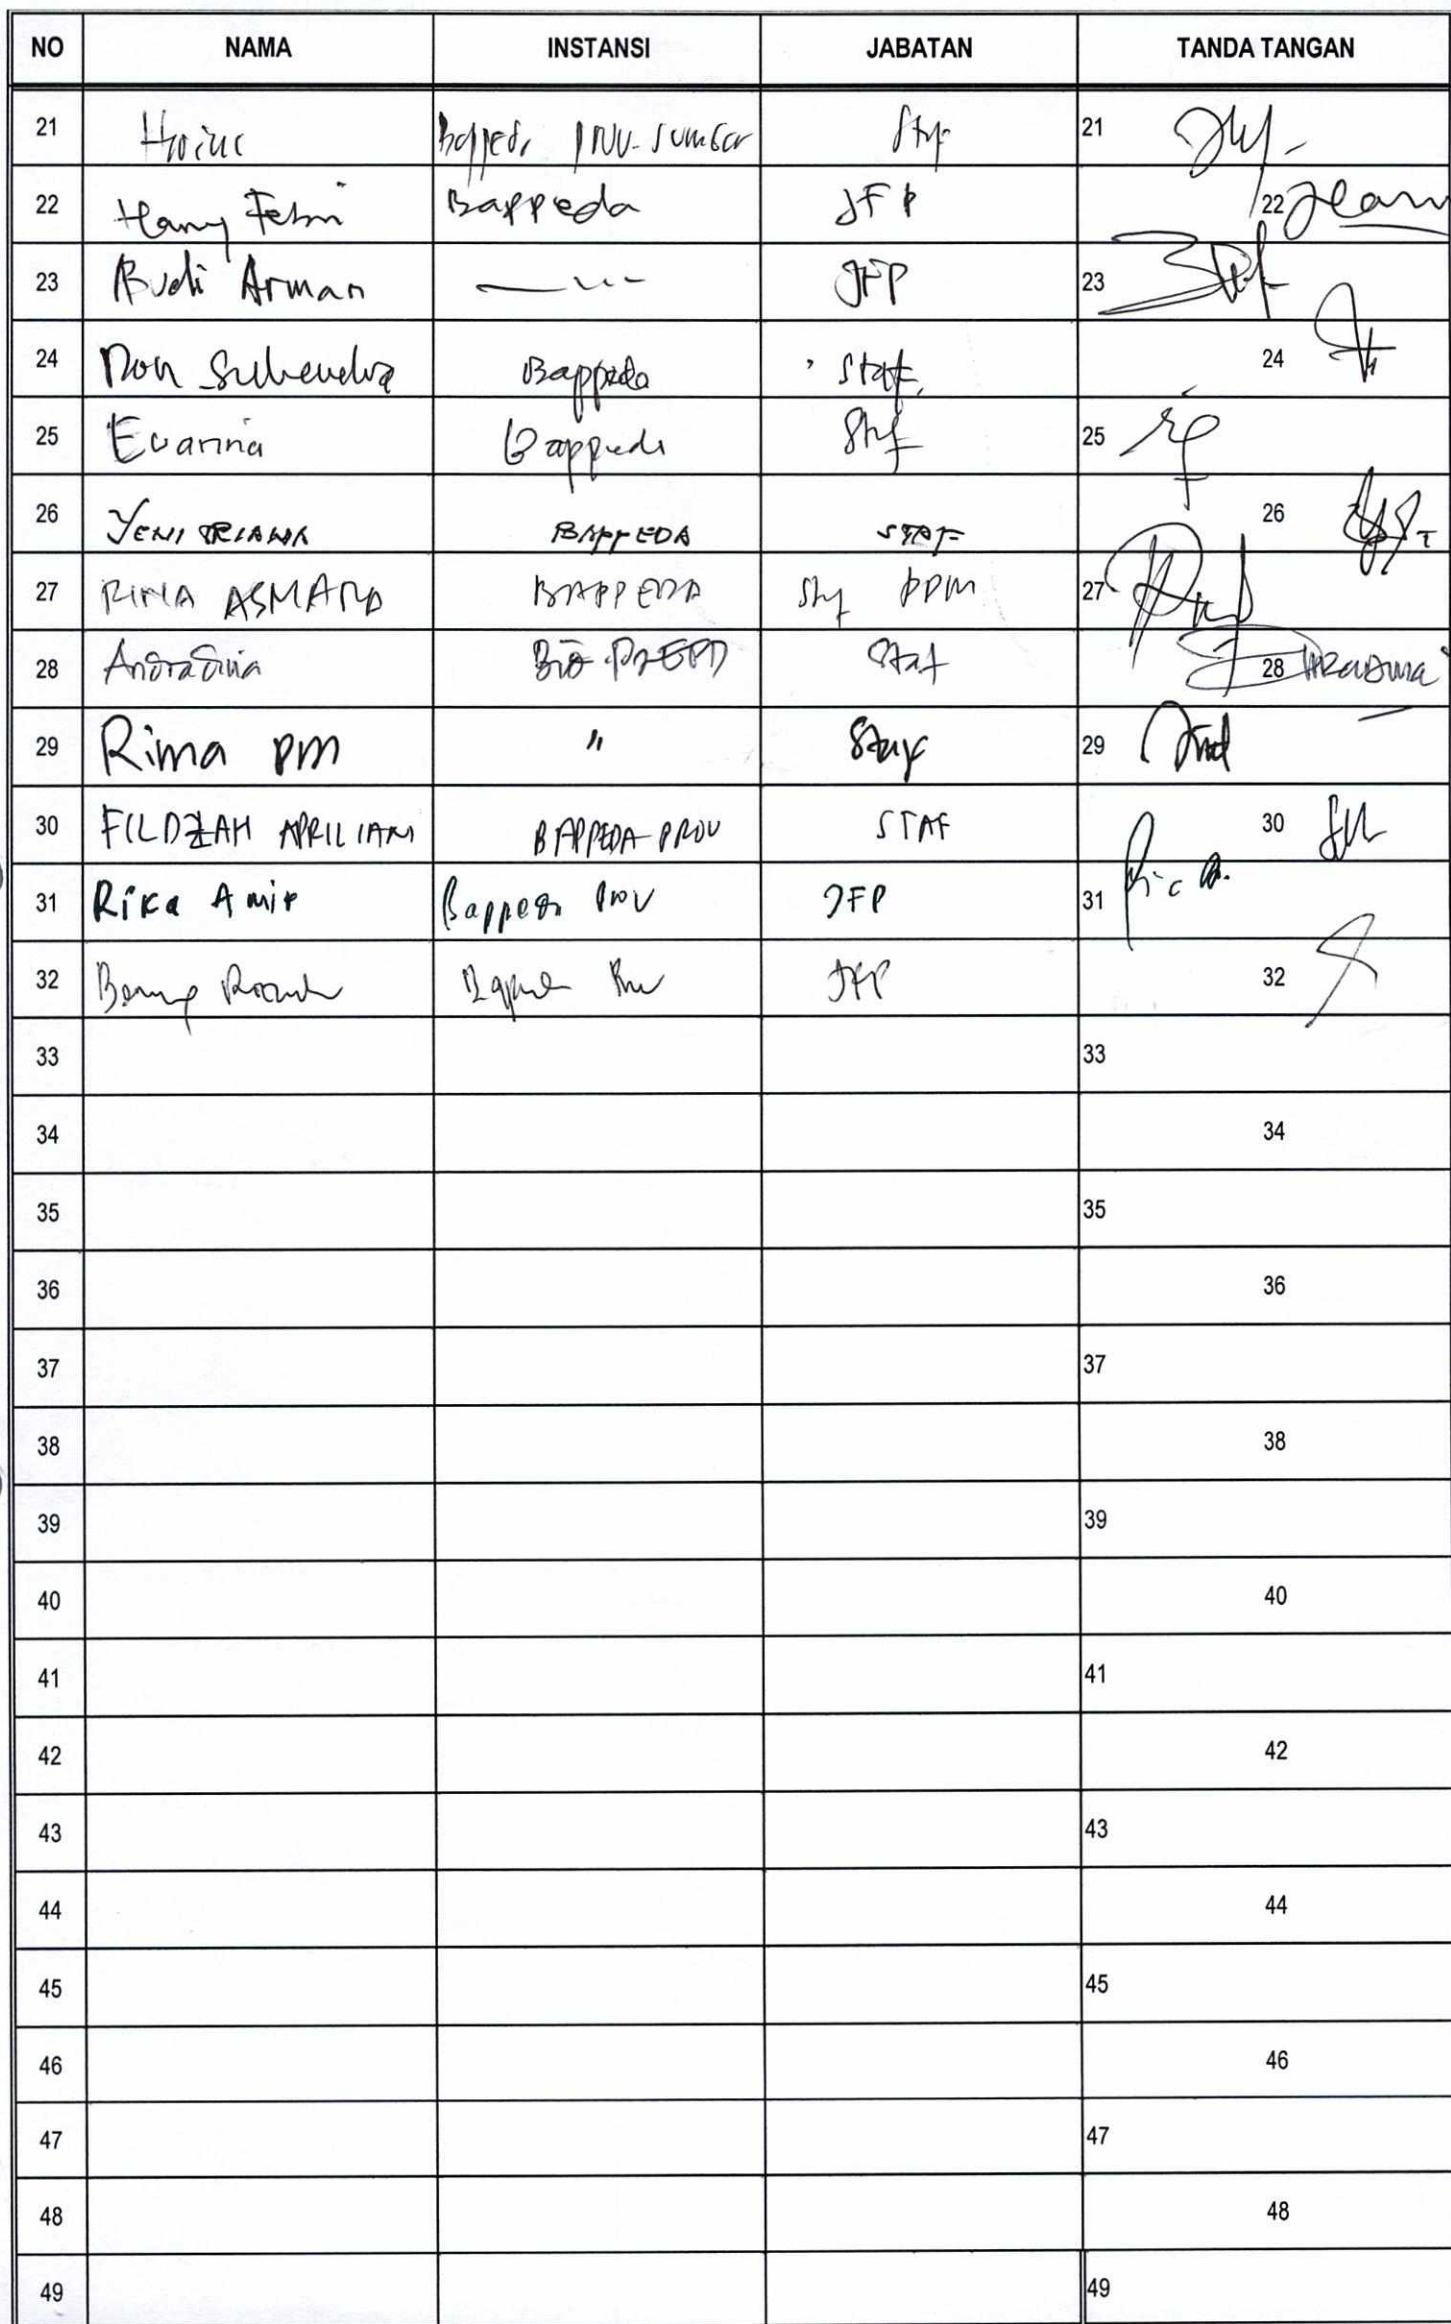 NO NAMA INSTANSI JABATAN TANDA TANGAN
21 Bappeda PROV. Sumbar Staf 21
22 Hany Febri Bappeda JFP 22
23 Budi Arman JFP 23
24 Don Suhendra Bappeda Staf 24
25 Evarina Bappeda Staf 25
26 YENI TRIANA BAPPEDA STAF 26
27 RIMA ASMARA BAPPEDA Staf PPM 27
28 Staf 28
29 Rima PM " Staf 29
30 FILDZAH APRILIANI BAPPEDA PROV STAF 30
31 Rika Amir Bappeda Prov JFP 31
32 JFP 32
33 33
34 34
35 35
36 36
37 37
38 38
39 39
40 40
41 41
42 42
43 43
44 44
45 45
46 46
47 47
48 48
49 49